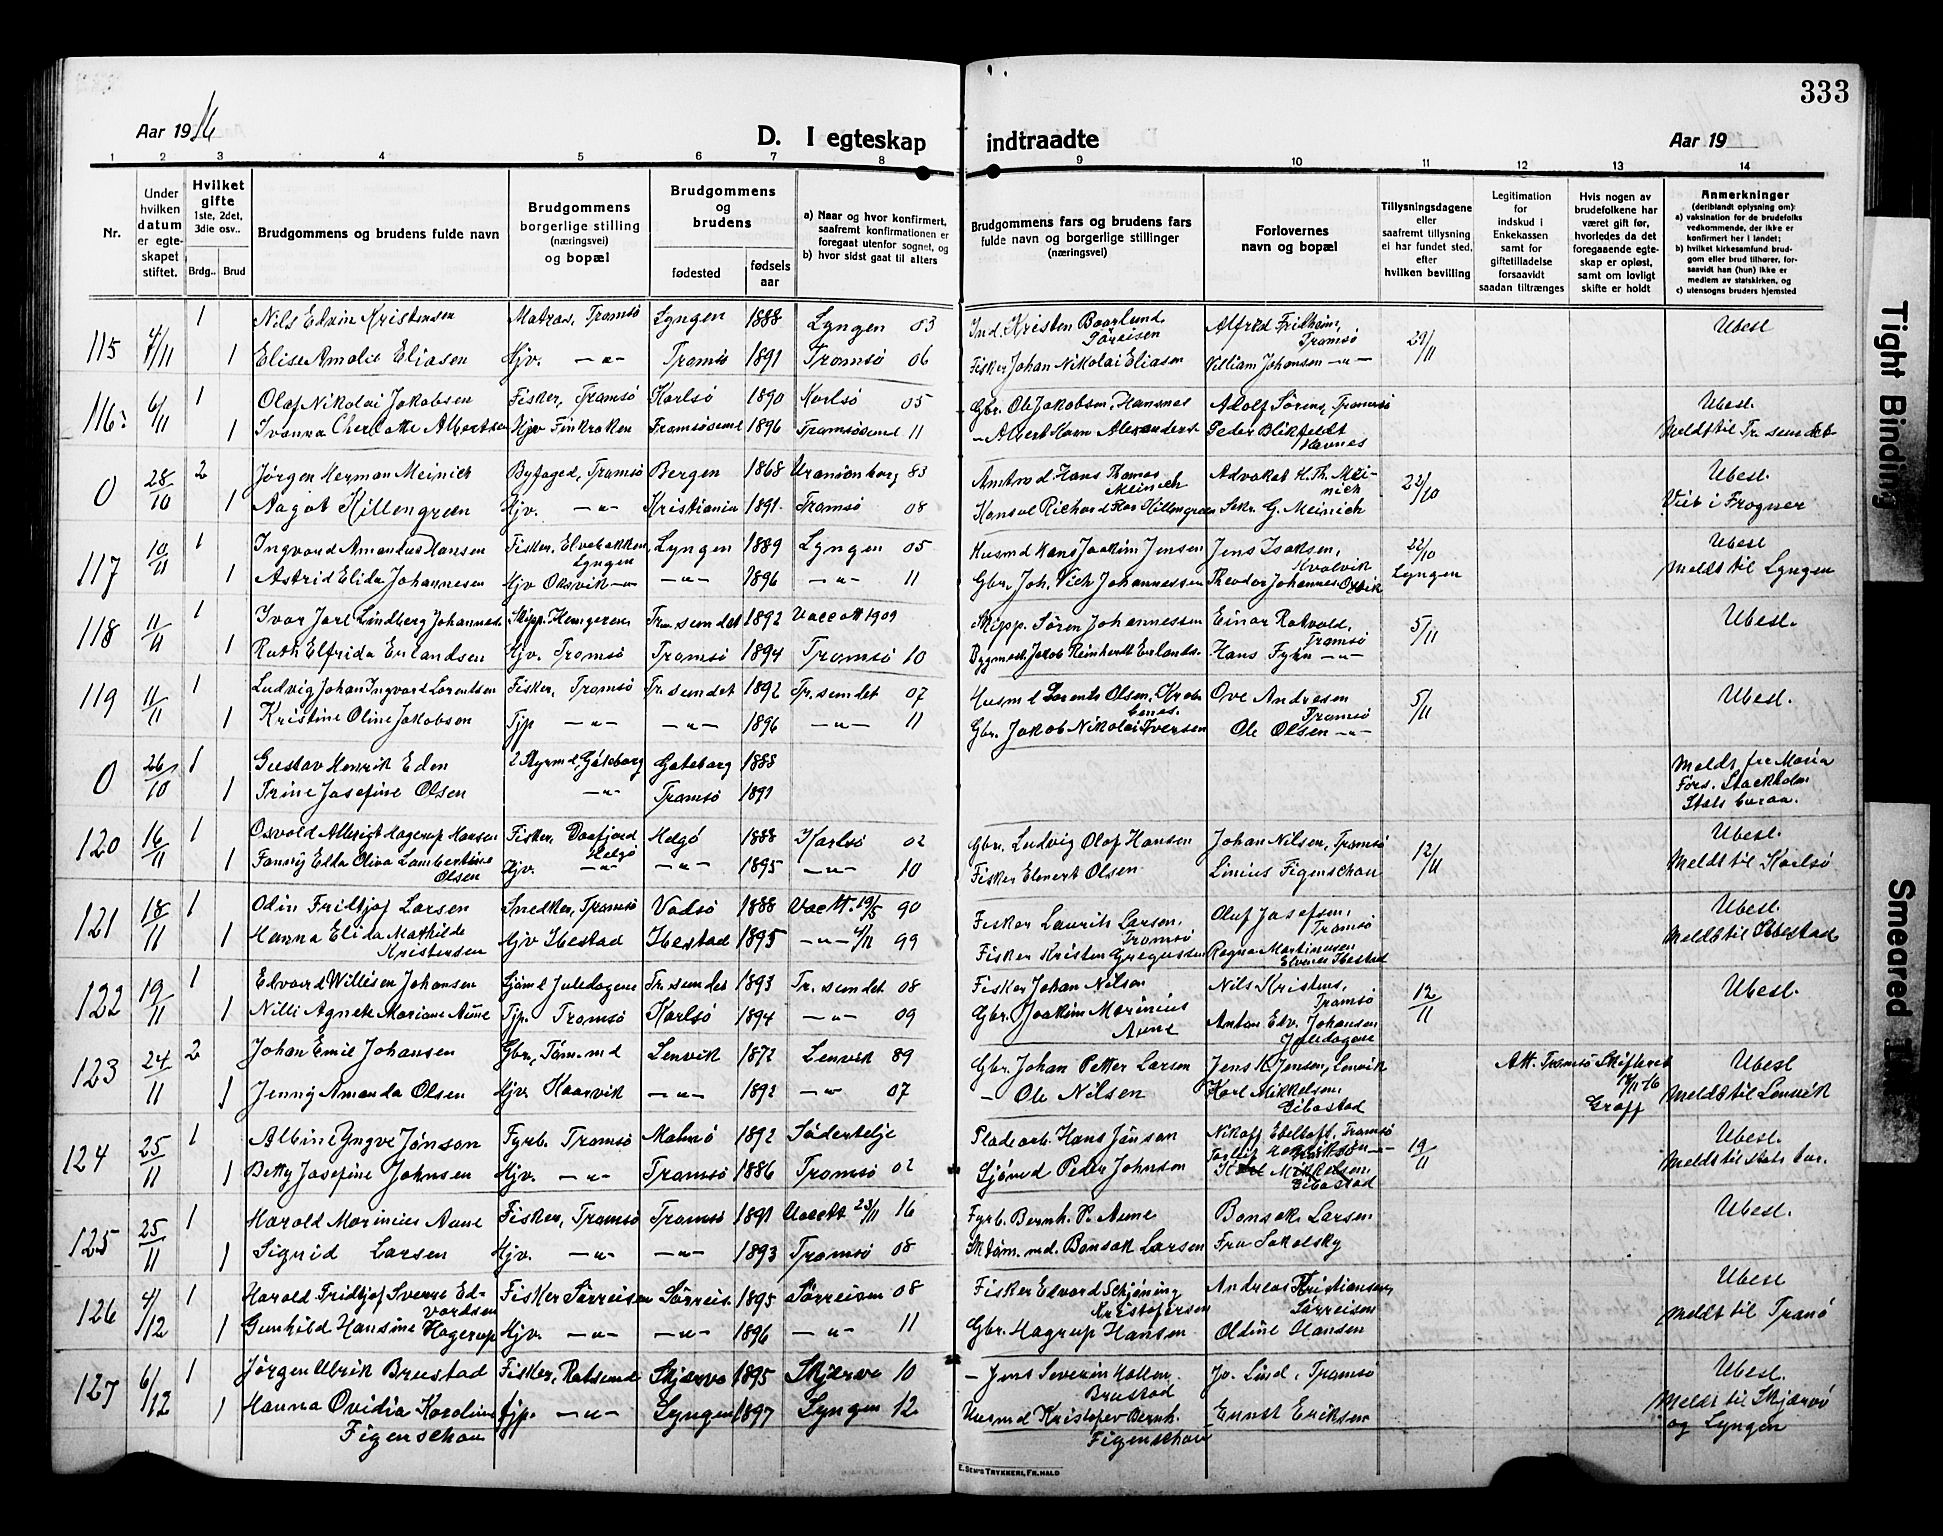 333
Aar 1916
D. I egteskap
indtraadte
Aar 19
1 2 3 4 5 6 7 8 9 10 11 12 13 14
Nr.
Under hvilken datum er egteskapet stiftet.
Hvilket gifte 1ste, 2det, 3die osv..
Brdg.. Brud
Brudgommens og brudens fulde navn
Brudgommens borgerlige stilling (næringsvei) og bopæl
Brudgommens og brudens
fødested
fødsels aar
a) Naar og hvor konfirmert, saafremt konfirmationen er foregaat utenfor sognet, og
b) hvor sidst gaat til alters
Brudgommens fars og brudens fars fulde navn og borgerlige stillinger (næringsvei)
Forlovernes navn og bopæl
Tillysningsdagene eller saafremt tillysning ei har fundet sted, efter hvilken bevilling
Legitimation for indskud i Enkekassen samt for giftetilladelse forsaavidt saadan tiltrænges
Hvis nogen av brudefolkene har været gift før, hvorledes da det foregaaende egteskap er opløst, samt om lovligt skifte er holdt
Anmerkninger (deriblandt oplysning om):
a) vaksination for de brudefolks vedkommende, der ikke er konfirmert her i landet;
b) hvilket kirkesamfund brudgom eller brud tilhører, forsaavidt han (hun) ikke er medlem av statskirken, og
c) utensogns bruders hjemsted
115 4/11 1 Nils Edvin Kristensen Matros, Tromsø Lyngen 1888 Lyngen 03 Ind. Kristen Baarlund Alfred Fridheim, Tromsø Ubesl
1 Elise Amalie Eliasen Hjv. —"— Tromsø 1891 Tromsø 06 Fisker Johan Nikolai Eliasen Villiam Johansen —"—
116. 6/11 1 Olaf Nikolai Jakobsen Fisker, Tromsø Karlsø 1890 Karlsø 05 Gbr. Ole Jakobsen, Hansnes Adolf Sørens, Tromsø Ubesl.
1 Ivanna Charlotte Albertsen Hjv Finkroken Tromsøsund 1896 Tromsøsund 11 Peder Blikfeldt Havnes Meldt til Tr. sundet
0 28/10 2 Jørgen Herman Meinich Byfoged, Tromsø Bergen 1868 Uranienborg 83 Amtmd Hans Thomas Meinich Advokat H. Th. Meinich 22/10 Ubesl.
1 Aagot Killengreen Hjv. —"— Kristiania 1891. Tromsø 08 Konsul Richard Killengreen Sekr. G. Meinich Viet i Frogner
117 10/11 1 Ingvard Amandus Hansen Fisker, Elvebakken, Lyngen Lyngen 1889 Lyngen 05 Husmd Hans Joakim Jensen Jens Isaksen, Kvalvik 22/10 Lyngen Ubesl
1 Astrid Elida Johannesen Hjv Oksvik —"— —"— 1896 —"— 11 Gbr. Joh. Vich Johannessen Theodor Johannes Oxvik meldt til Lyngen
118 11/11 1 Ivar Jarl Lindberg Johannes. Skipp. Tr. sundet 1892 Vacc att 1909 Skipp. Søren Johannessen Einar Rotvold, Tromsø 5/11 Ubesl.
1 Ruth Elfrida Erlandsen Hjv. Tromsø Tromsø 1894 Tromsø 10 Bygmest. Jakob Reinhardt Erlands. Hans Fyhn —"—
119 11/11 1 Ludvig Johan Ingvard Lorentsen Fisker, Tromsø Tr. sundet 1892 Tr. sundet 07 Husmd Lorents Olsen, Ove Andresen Tromsø 5/11 Ubesl.
1 Kristine Oline Jakobsen Tjp —"— —"— 1896 —"— 11 Gbr. Jakob Nikolai Iversen Ole Olsen —"—
0 26/10 1 Gustav Henrik Eden 2 Styrmd, Göteborg Göteborg 1888 Meldt fra Maria
1 Trine Josefine Olsen —"— Tromsø 1891 Førs. Stockholm Stats buraa.
120 16/11 1 Osvald Albrigt Hagerup Hansen Fisker, Daafjord Helgø Helgø 1888 Karlsø 02 Gbr. Ludvig Olaf Hansen Johan Nilsen, Tromsø 12/11 Ubesl.
1 Fanny Etta Oliva Lambertine Olsen Hjv. —"— —"— 1895 —"— 10 Fisker Elmert Olsen Linius Figenschau Meldt til Karlsø
121 18/11 1 Odin Fridtjof Larsen Snedker, Tromsø Vadsø 1888 Vac att. 19/5 90 Fisker Laurits Larsen, Tromsø Oluf Josefsen, Tromsø Ubesl.
1 Hanna Elida Mathilde Kristensen Hjv Ibestad Ibestad 1895 —"— 4/11 99 Fisker Kristen Gregussen Ragna Martinusen Elvenes Ibestad Meldt til Ibestad
122 19/11 1 Edvard Willisen Johansen Sjømd Juledagene Tr. sundet 1893 Tr. sundet 08 Fisker Johan Nilsen Nils Kristens, Tromsø 12/11 Ubesl.
1 Nilli Agnete Mariane Aune Tjp. Tromsø Karlsø 1894 —"— 09 Gbr. Joakim Marinius Aune Anton Edv. Johansen Juledagene
123 24/11 2 Johan Emil Johansen Gbr., Tøm. md Lenvik 1872 Lenvik 89 Gbr. Johan Petter Larsen Jens K. Jensen, Lenvik Att. Tromsø Skifteret 18/11-16 Graff Ubesl
1 Jenny Amanda Olsen Hjv. Kaarvik —"— 1892 —"— 07 — Ole Nilsen Karl Mikkelsen, Gibostad Meldt til Lenvik
124 25/11 1 Albin Yngve Jönson Fyrb. Tromsø Malmö 1892 Södertelje Pladearb. Hans Jönson Nikoff Ebeltoft, Tromsø 19/11 Ubesl.
1 Betty Josefine Johnsen Hjv. —"— Tromsø 1886 Tromsø 02 Sjømd Peter Johnson Mikkelsen, Gibostad Meldt til stats bur.
125 25/11 1 Harald Marinius Aune Fisker, Tromsø Tromsø 1891 Vacc att 23/11 16 Fyrb. Bernh. P. Aune Bonsak Larsen Ubesl.
1 Sigrid Larsen Hjv. —"— —"— 1893 Tromsø 08 Tøm. md. Bonsak Larsen Fru Sokolsky
126 4/12 1 Harald Fridtjof Sverre Edvardsen Fisker Sørreisen Sørreis. 1895 Sørreisen 08 Fisker Edvard Schjøning Kristofersen Andreas Kristiansen, Sørreisen Ubesl
1 Gunhild Hansine Hagerup Hjv. —"— —"— 1896 —"— 11 Gbr. Hagrup Hansen Oldine Hansen Meldt til Tranø
127 6/12 1 Jørgen Ulrik Brustad Fisker, Rotsund Skjærvø 1895 Skjærvø 10 — Jens Severin Brustad Jo. Lind, Tromsø Ubesl.
1 Hanna Ovidia Karoline Figenschau Tjp. —"— Lyngen 1897 Lyngen 12. Husmd Kristofer Bernh. Figenschau Ernst Eriksen Meldt til Skjærvø og Lyngen
E. Sem's Trykkeri, Fr.hald
Tight Binding
Smeared